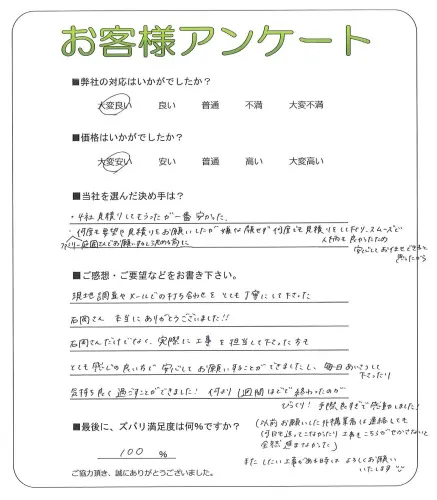 お客様アンケート
■弊社の対応はいかがでしたか？
大変良い 良い 普通 不満 大変不満
■価格はいかがでしたか？
大変安い 安い 普通 高い 大変高い
■当社を選んだ決め手は？
・4社見積りしてもらったが一番安かった。
・何度も要望や見積りをお願いしたが嫌な顔せず何度も見積りをして下さり、スムーズで
石岡さんでお願いすると決める前に
人柄も良かったため
安心しておまかせできると
思ったから
■ご感想・ご要望などをお書き下さい。
現地調査やメールでの打ち合わせをとても丁寧にして下さった
石岡さん 本当にありがとうございました!!
石岡さんだけでなく、実際に工事を担当して下さった方も
とても感じの良い方で安心してお願いすることができましたし、毎日あいさつして
下さったり
気持ち良く過ごすことができました! 何より1週間ほどで終わったのが
びっくり! 手際良すぎで感動しました!
(以前お願いした外構業者は連絡しても
何日も返ってこなかったり工事もこちらがせかさないと
全然進まなかった)
またしたい工事がある時はよろしくお願い
いたします
■最後に、ズバリ満足度は何％ですか？
100 %
ご協力頂き、誠にありがとうございました。